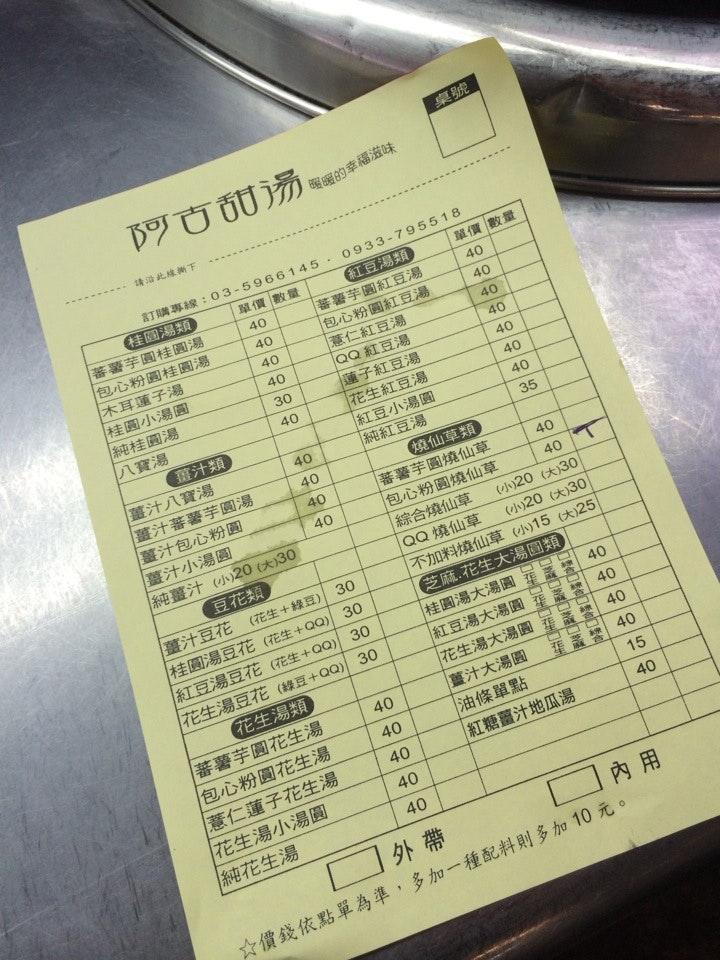 桌號
阿古甜湯 暖暖的幸福滋味
請沿此線撕下
訂購專線：03-5966145．0933-795518
桂圓湯類 單價 數量
蕃薯芋圓桂圓湯 40
包心粉圓桂圓湯 40
木耳蓮子湯 40
桂圓小湯圓 40
純桂圓湯 30
八寶湯 40
薑汁類
薑汁八寶湯 40
薑汁蕃薯芋圓湯 40
薑汁包心粉圓 40
薑汁小湯圓 40
純薑汁 (小)20 (大)30
豆花類
薑汁豆花 (花生+綠豆) 30
桂圓湯豆花 (花生+QQ) 30
紅豆湯豆花 (花生+QQ) 30
花生湯豆花 (綠豆+QQ) 30
花生湯類
蕃薯芋圓花生湯 40
包心粉圓花生湯 40
薏仁蓮子花生湯 40
花生湯小湯圓 40
純花生湯 40
紅豆湯類 單價 數量
蕃薯芋圓紅豆湯 40
包心粉圓紅豆湯 40
薏仁紅豆湯 40
QQ紅豆湯 40
蓮子紅豆湯 40
花生紅豆湯 40
紅豆小湯圓 40
純紅豆湯 35
燒仙草類
蕃薯芋圓燒仙草 40
包心粉圓燒仙草 40
綜合燒仙草 (小)20 (大)30
QQ 燒仙草 (小)20 (大)30
不加料燒仙草 (小)15 (大)25
芝麻.花生大湯圓類
桂圓湯大湯圓 花生 芝麻 綜合 40
紅豆湯大湯圓 花生 芝麻 綜合 40
花生湯大湯圓 花生 芝麻 綜合 40
薑汁大湯圓 花生 芝麻 綜合 40
油條單點 15
紅糖薑汁地瓜湯 40
外帶 內用
☆價錢依點單為準，多加一種配料則多加10元。